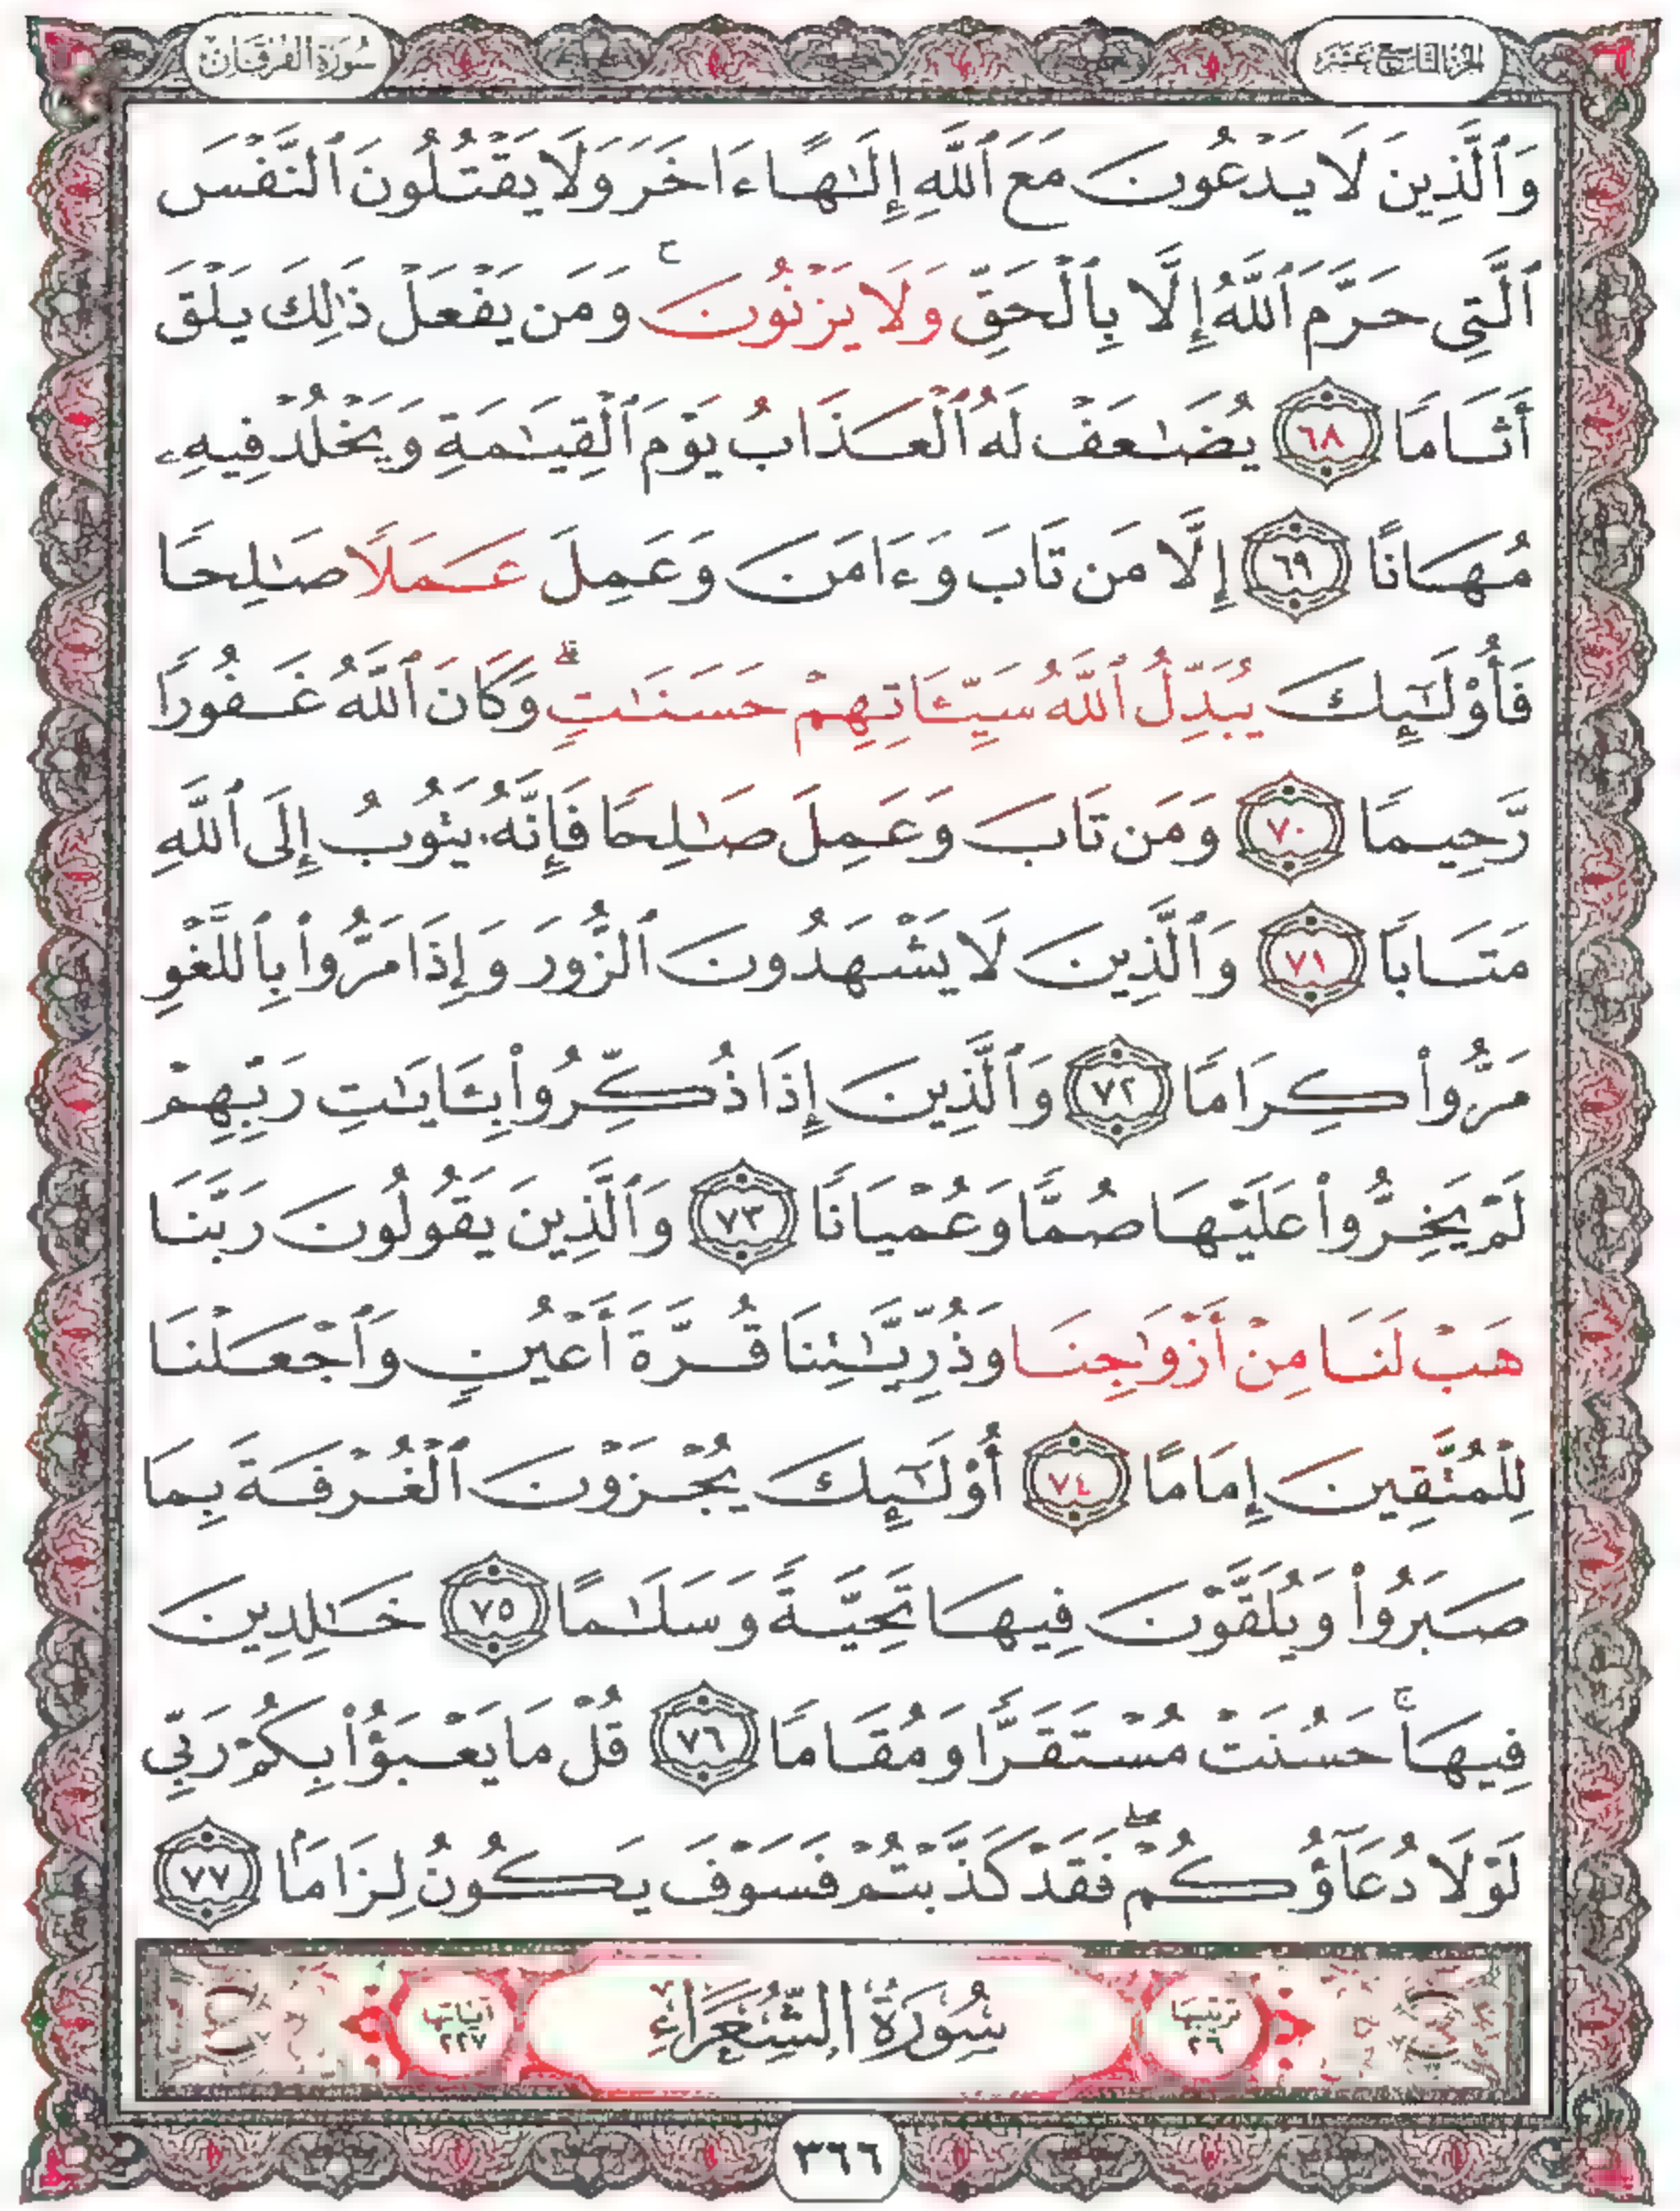 الجزء التاسع عشر
سورة الفرقان
وَٱلَّذِينَ لَا يَدْعُونَ مَعَ ٱللَّهِ إِلَٰهًا ءَاخَرَ وَلَا يَقْتُلُونَ ٱلنَّفْسَ
ٱلَّتِى حَرَّمَ ٱللَّهُ إِلَّا بِٱلْحَقِّ وَلَا يَزْنُونَ ۚ وَمَن يَفْعَلْ ذَٰلِكَ يَلْقَ
أَثَامًا ٦٨ يُضَٰعَفْ لَهُ ٱلْعَذَابُ يَوْمَ ٱلْقِيَٰمَةِ وَيَخْلُدْ فِيهِۦ
مُهَانًا ٦٩ إِلَّا مَن تَابَ وَءَامَنَ وَعَمِلَ عَمَلًا صَٰلِحًا
فَأُو۟لَٰٓئِكَ يُبَدِّلُ ٱللَّهُ سَيِّـَٔاتِهِمْ حَسَنَٰتٍ ۗ وَكَانَ ٱللَّهُ غَفُورًا
رَّحِيمًا ٧٠ وَمَن تَابَ وَعَمِلَ صَٰلِحًا فَإِنَّهُۥ يَتُوبُ إِلَى ٱللَّهِ
مَتَابًا ٧١ وَٱلَّذِينَ لَا يَشْهَدُونَ ٱلزُّورَ وَإِذَا مَرُّوا۟ بِٱللَّغْوِ
مَرُّوا۟ كِرَامًا ٧٢ وَٱلَّذِينَ إِذَا ذُكِّرُوا۟ بِـَٔايَٰتِ رَبِّهِمْ
لَمْ يَخِرُّوا۟ عَلَيْهَا صُمًّا وَعُمْيَانًا ٧٣ وَٱلَّذِينَ يَقُولُونَ رَبَّنَا
هَبْ لَنَا مِنْ أَزْوَٰجِنَا وَذُرِّيَّٰتِنَا قُرَّةَ أَعْيُنٍ وَٱجْعَلْنَا
لِلْمُتَّقِينَ إِمَامًا ٧٤ أُو۟لَٰٓئِكَ يُجْزَوْنَ ٱلْغُرْفَةَ بِمَا
صَبَرُوا۟ وَيُلَقَّوْنَ فِيهَا تَحِيَّةً وَسَلَٰمًا ٧٥ خَٰلِدِينَ
فِيهَا ۚ حَسُنَتْ مُسْتَقَرًّا وَمُقَامًا ٧٦ قُلْ مَا يَعْبَؤُا۟ بِكُمْ رَبِّى
لَوْلَا دُعَآؤُكُمْ ۖ فَقَدْ كَذَّبْتُمْ فَسَوْفَ يَكُونُ لِزَامًۢا ٧٧
ترتيبها ٢٦ سُورَةُ الشُّعَرَاءِ آياتها ٢٢٧
٣٦٦